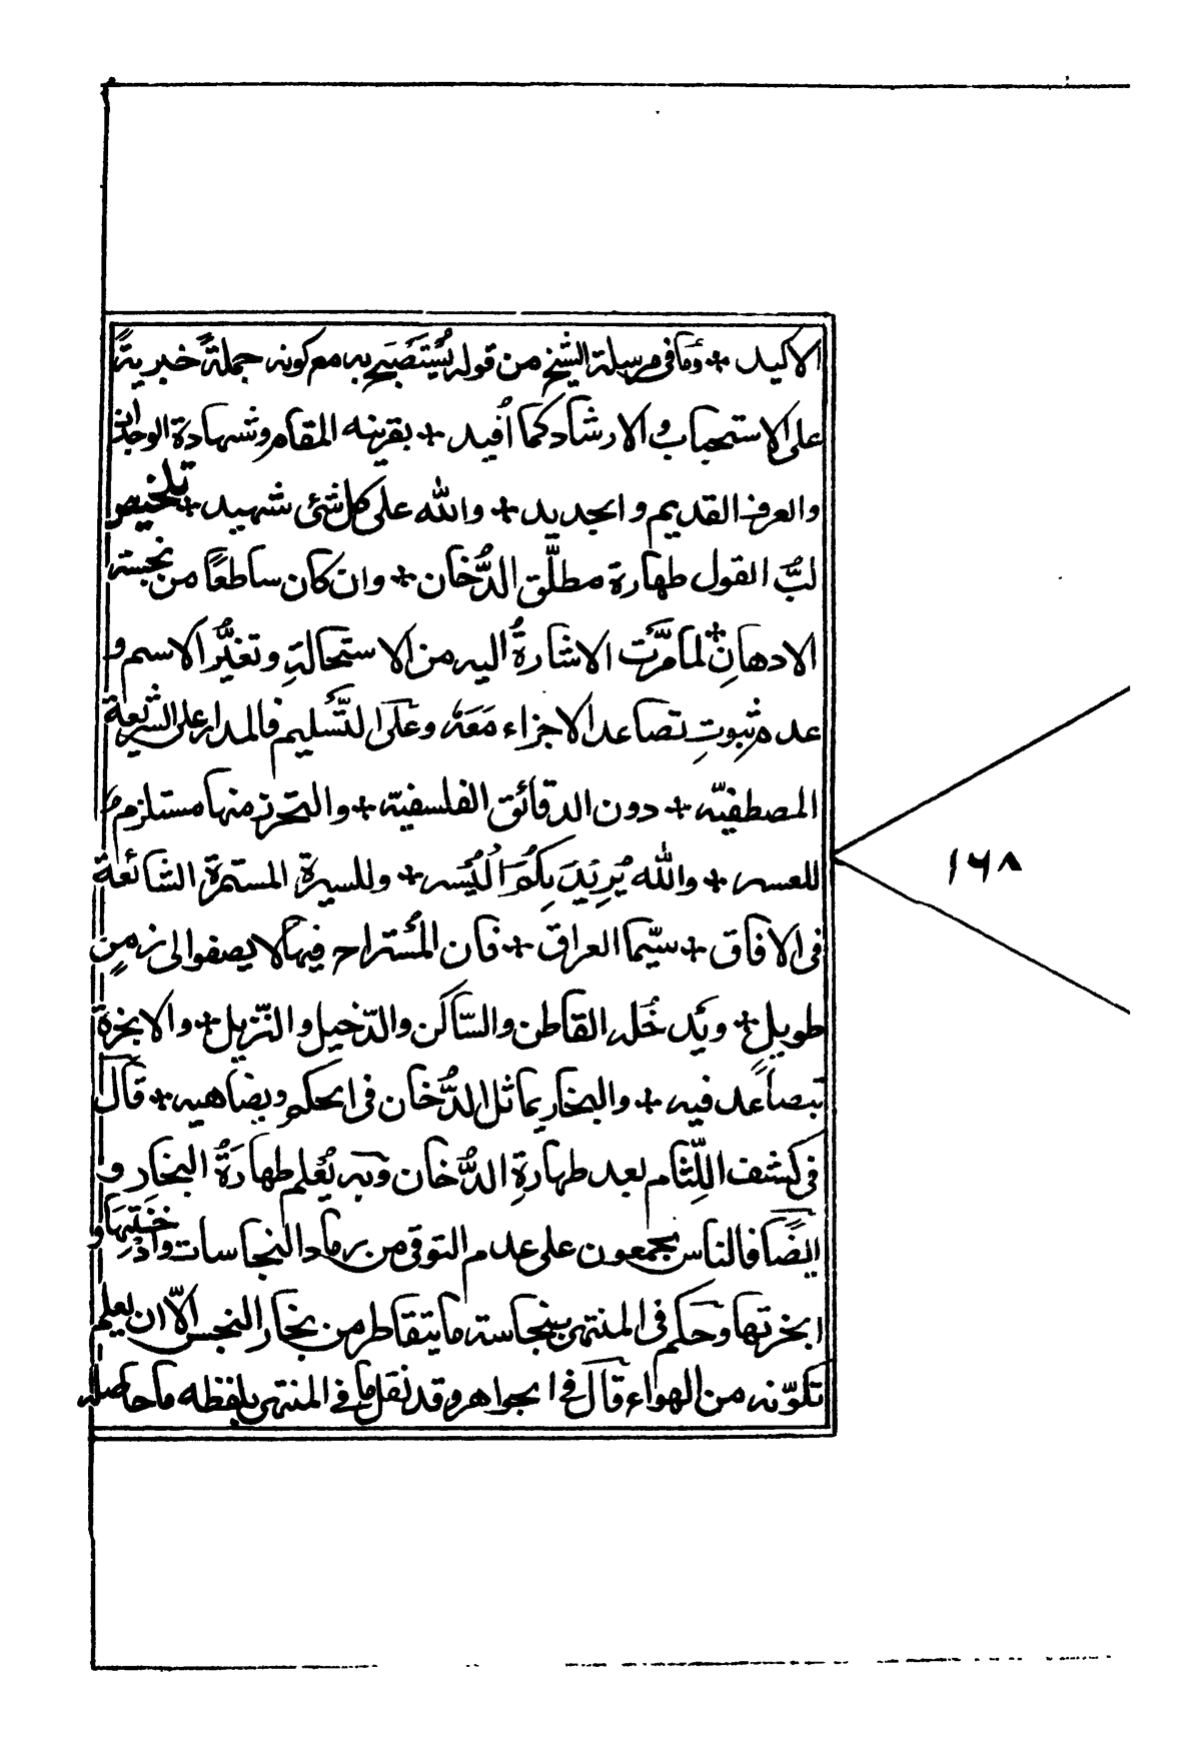 الاكيد + وما فى مرسلة الشيخ من قوله يُستَصبَح به مع كونه جملةً خبريةً
على الاستحباب والارشاد كما اُفيد + بقرينه المقام وشهادة الوجدان
والعرف القديم والجديد + والله على كل شئ شهيد + تلخيص
لبُّ القول طهارة مطلَّق الدُّخان + وان كان ساطعًا من نجسة
الادهانِ + لما مرَّت الاشارةُ اليه من الاستحالةِ وتغيُّر الاسم و
عدم ثبوتِ تصاعد الاجزاء مَعَهٗ وعلَى التَّسليم فالمدار على الشريعة
المصطفيّه + دون الدقائق الفلسفيّة + والتحرز منها مستلزم
للعسر + والله يُرِيْدَ بِكُمُ الْيُسر + وللسيرة المستمرة الشائعة
فى الافاق + سيّما العراق + فان المُستراح فيها لا يصفوا الى زمنٍ
طويلٍ + ويَدخُله القاطن والسّاكن والدّخيل والنّزيل + والابخرة
تبصاعد فيه + والبخار يماثل الدُّخان فى الحكم ويضاهيه + قال
فى كشف اللِّثام بعد طهارةِ الدُّخان وَبه يُعلم طهارَةُ البخار و
ايضًا فالناس مجمعون على عدم التوقى من رماد النجاسات وادخنتها و
ابخرتها وحكم فى المنتهى بنجاسة ما يتقاطر من بخار النجس الّا ان يعلم
تكوّنه من الهواء قال فى الجواهر وقد نقل ما فى المنتهى بلفظه ما حاصله
١٦٨